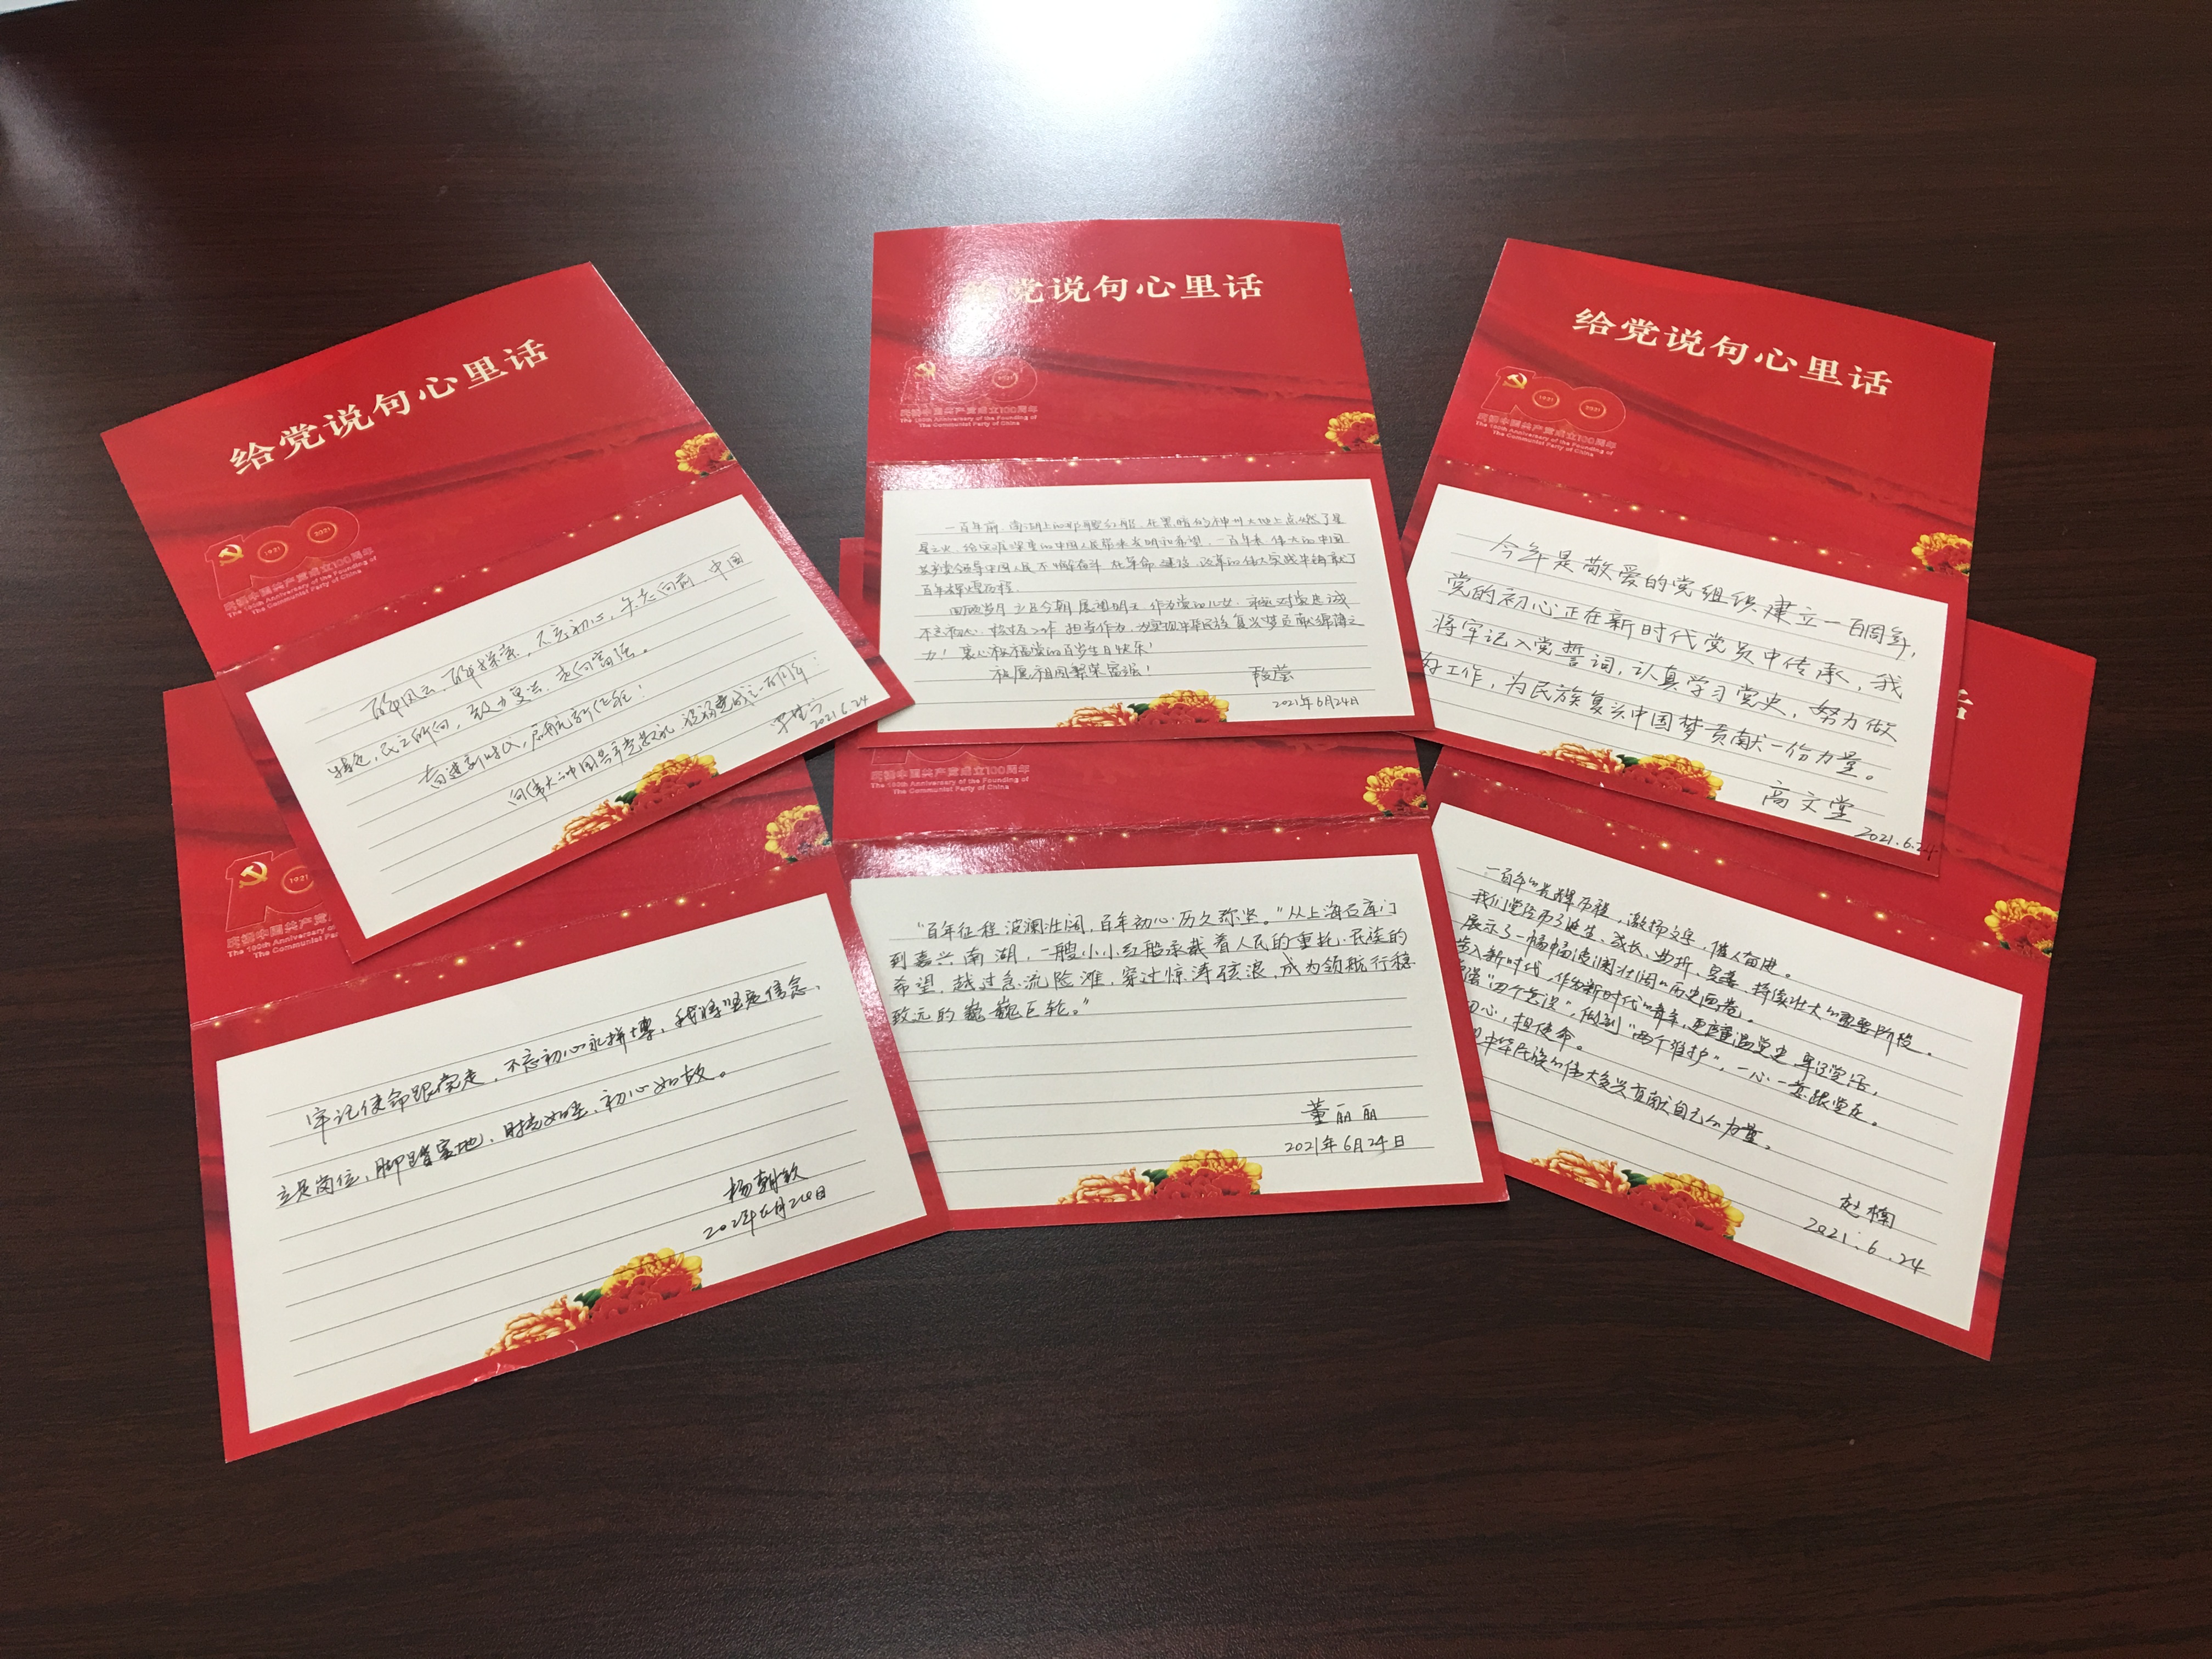 给党说句心里话
1921
2021
庆祝中国共产党成立100周年
The 100th Anniversary of the Founding of
The Communist Party of China
百年风云，百年探索，不忘初心，矢志向前，中国
特色，民之所向，致力复兴，走向富强。
奋进新时代，启航新征程！
向伟大的中国共产党致礼，祝福党成立一百周年！
2021.6.24
党说句心里话
庆祝中国共产党成立100周年
The 100th Anniversary of the Founding of
The Communist Party of China
一百年前，南湖上的那艘红船，在黑暗的神州大地上点燃了星
星之火，给灾难深重的中国人民带来光明和希望，一百年来，伟大的中国
共产党领导中国人民不懈奋斗，在革命、建设、改革的伟大实践中铸就了
百年辉煌历程。
回顾岁月，立足今朝，展望明天，作为党的儿女，永远对党忠诚
不忘初心，担当作为，为实现中华民族复兴梦贡献绵薄之
力！衷心祝福党的百岁生日快乐！
祝愿祖国繁荣富强！
段莹
2021年6月24日
给党说句心里话
1921
2021
庆祝中国共产党成立100周年
The 100th Anniversary of the Founding of
The Communist Party of China
今年是敬爱的党组织建立一百周年，
党的初心正在新时代党员中传承，我
将牢记入党誓词，认真学习党史，努力做
好工作，为民族复兴中国梦贡献一份力量。
高文堂
2021.6.24
1921
庆祝中国共产党
The 100th Anniversary of
The Communist Par
牢记使命跟党走，不忘初心永拼搏，我将坚定信念，
立足岗位，脚踏实地，时光如逝，初心如故。
杨朝钦
2021年6月24日
庆祝中国共产党成立100周年
The 100th Anniversary of the Founding of
The Communist Party of China
“百年征程波澜壮阔，百年初心历久弥坚。”从上海石库门
到嘉兴南湖，一艘小小红船承载着人民的重托、民族的
希望，越过急流险滩，穿过惊涛骇浪，成为领航行稳
致远的巍巍巨轮。”
董丽丽
2021年6月24日
话
一百年的光辉历程，激扬文字，催人奋进。
我们党经历了诞生、成长、曲折、完善、持续壮大的重要阶段。
展示了一幅幅波澜壮阔的历史画卷。
步入新时代，作为新时代的青年，更应重温党史，牢记党语，
增强“四个意识”，做到“两个维护”，一心一意跟党走。
初心，担使命。
中华民族的伟大复兴贡献自己的力量。
赵楠
2021.6.24